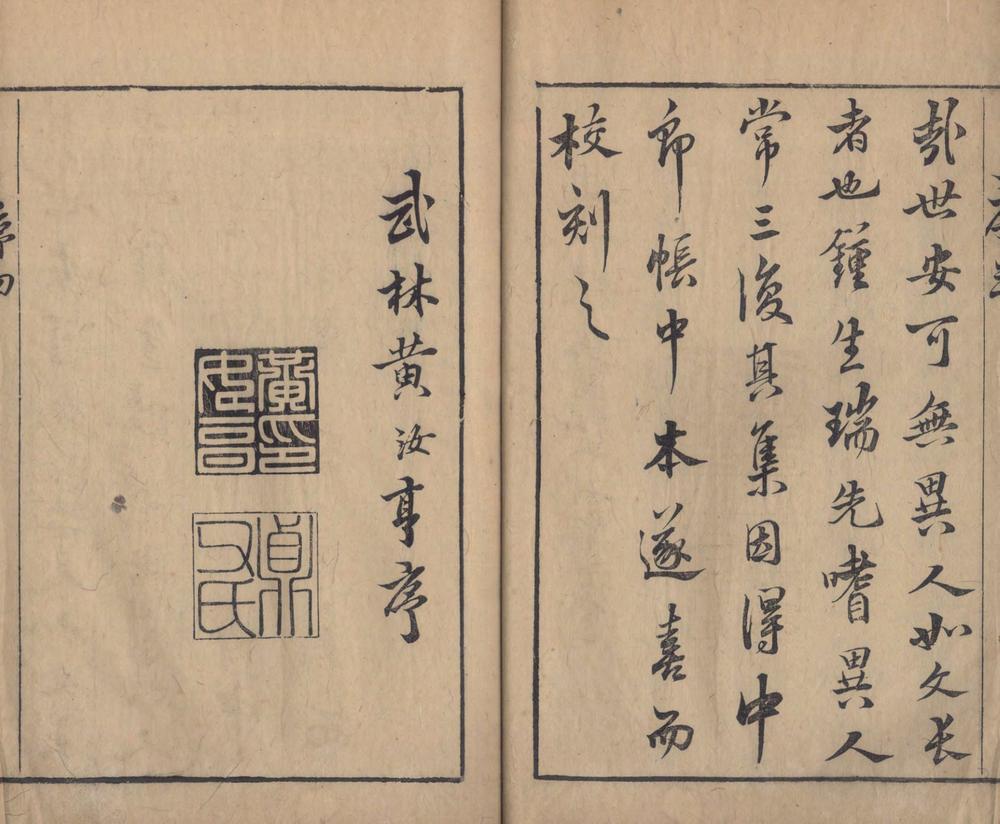 哉世安可無異人如文長
者也鍾生瑞先嗜異人
常三復其集因得中
郎帳中本遂喜而
校刻之
武林黄汝亨序
黃印汝亨
貞父氏
序四